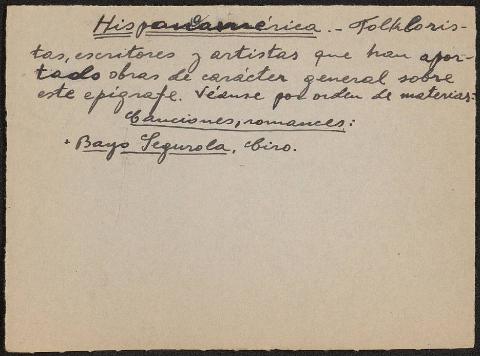 Hispanamérica. - Folkloris-
tas, escritores y artistas que han apor-
tado obras de carácter general sobre
este epígrafe. Véanse por orden de materias:
Canciones, romances:
+ Bayo Segurola, Ciro.